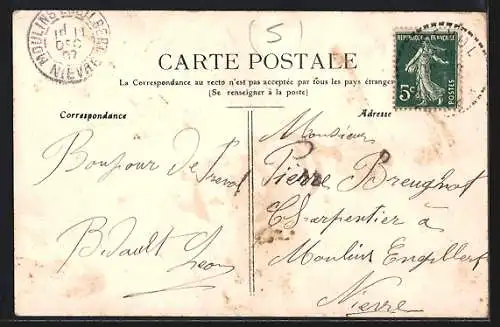 MOULINS-ENGILBERT
DEC
07
NIÈVRE
(5)
CARTE POSTALE
La Correspondance au recto n'est pas acceptée par tous les pays étrangers
(Se renseigner à la poste)
RÉPUBLIQUE FRANÇAISE
5c
POSTES
Correspondance
Bonjour de
Bidault Léon
Adresse
Monsieur
Pierre Breugnot
Charpentier à
Moulins Engilbert
Nièvre